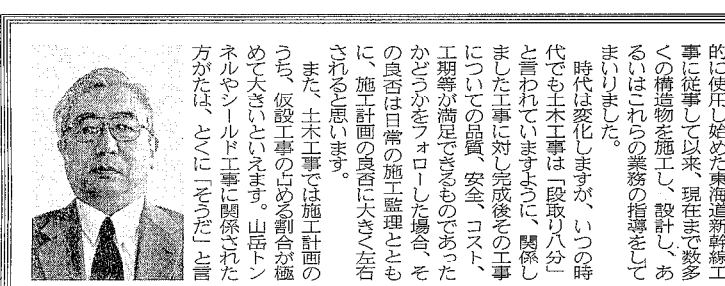 的に使用し始めた東海道新幹線工
事に従事して以来、現在まで数多
くの構造物を施工し、設計し、あ
るいはこれらの業務の指導をして
まいりました。
時代は変化しますが、いつの時
代でも土木工事は「段取り八分」
と言われていますように、関係し
ました工事に対し完成後その工事
についての品質、安全、コスト、
工期等が満足できるものであった
かどうかをフォローした場合、そ
の良否は日常の施工監理ととも
に、施工計画の良否に大きく左右
されると思います。
また、土木工事では施工計画の
うち、仮設工事の占める割合が極
めて大きいといえます。山岳トン
ネルやシールド工事に関係された
方がたは、とくに「そうだ」と言